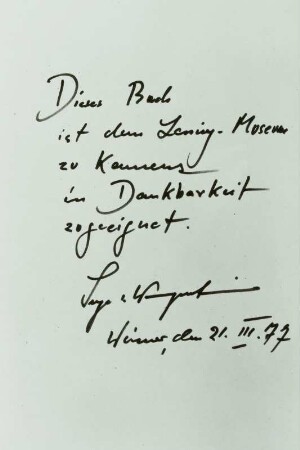 Dieses Buch
ist dem Lessing-Museum
zu Kamenz
in Dankbarkeit
zugeeignet.
Weimar, den 21. III. 77